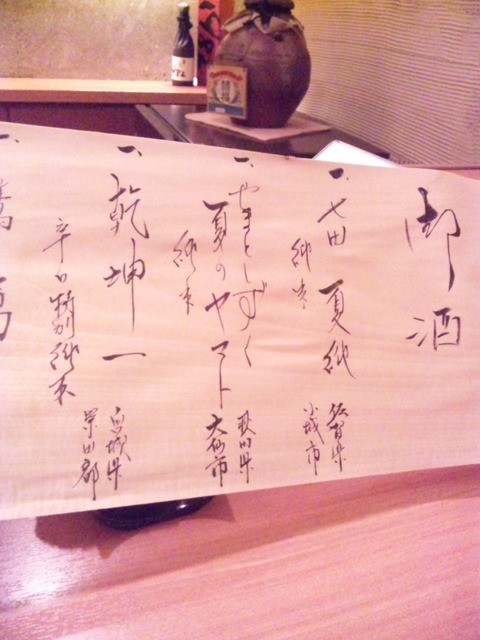 御酒
一、七田 夏純
純米
佐賀県
小城市
一、やまとしずく
夏のヤマト
純米
秋田県
大仙市
一、乾坤一
辛口特別純米
宮城県
柴田郡
一、